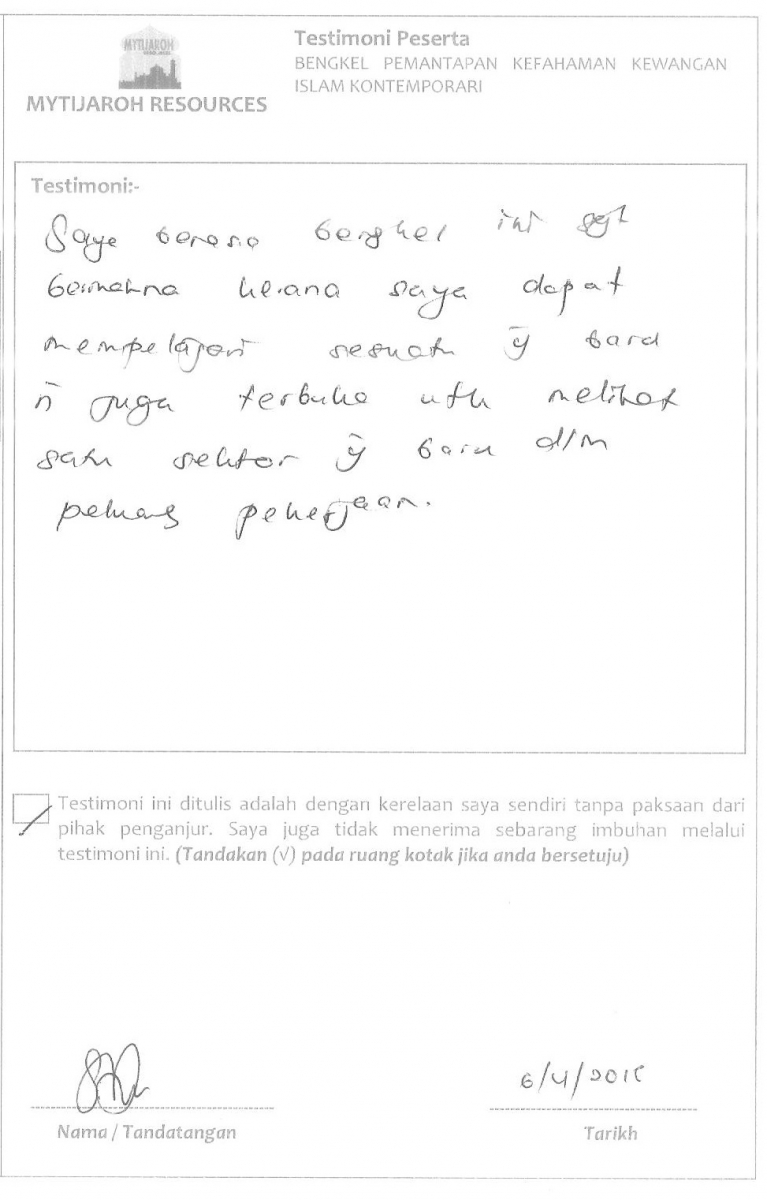 MYTIJAROH
MYTIJAROH RESOURCES
Testimoni Peserta
BENGKEL PEMANTAPAN KEFAHAMAN KEWANGAN
ISLAM KONTEMPORARI
Testimoni:-
Saya berasa bengkel ini sgt
bermakna kerana saya dapat
mempelajari sesuatu ȳ baru
n̄ juga terbuka utk melihat
satu sektor ȳ baru dlm
peluang pekerjaan.
Testimoni ini ditulis adalah dengan kerelaan saya sendiri tanpa paksaan dari
pihak penganjur. Saya juga tidak menerima sebarang imbuhan melalui
testimoni ini. (Tandakan (√) pada ruang kotak jika anda bersetuju)
6/4/2015
Nama / Tandatangan
Tarikh